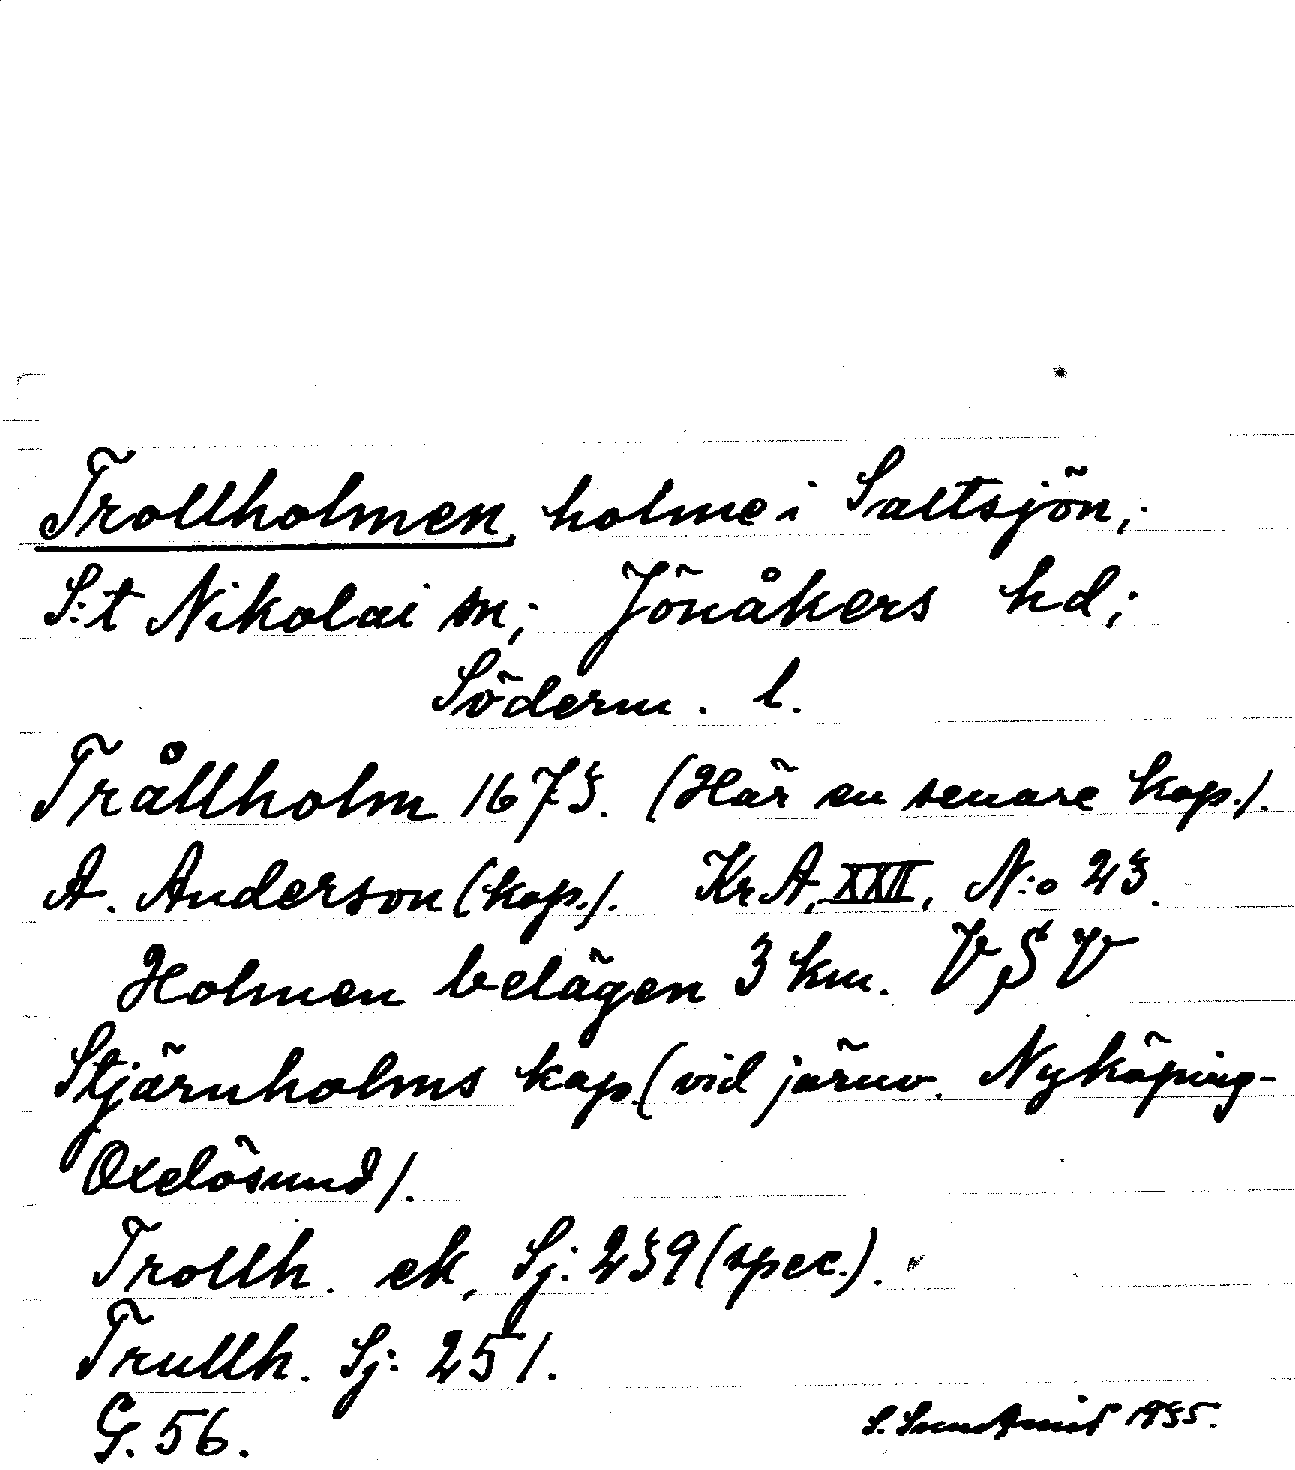 Trollholmen, holme i Saltsjön,
S:t Nikolai sn; Jönåkers hd;
Söderm. l.
Trållholm 1673. (Här en senare kop.).
A. Anderson (kop.). Kr A, XXII, N:o 23.
Holmen belägen 3 km. VSV
Stjärnholms kap (vid järnv. Nyköping-
Oxelösund).
Trollh. ek, Sj: 239 (spec.).
Trullh. Sj: 251.
G. 56.
S. 1935.